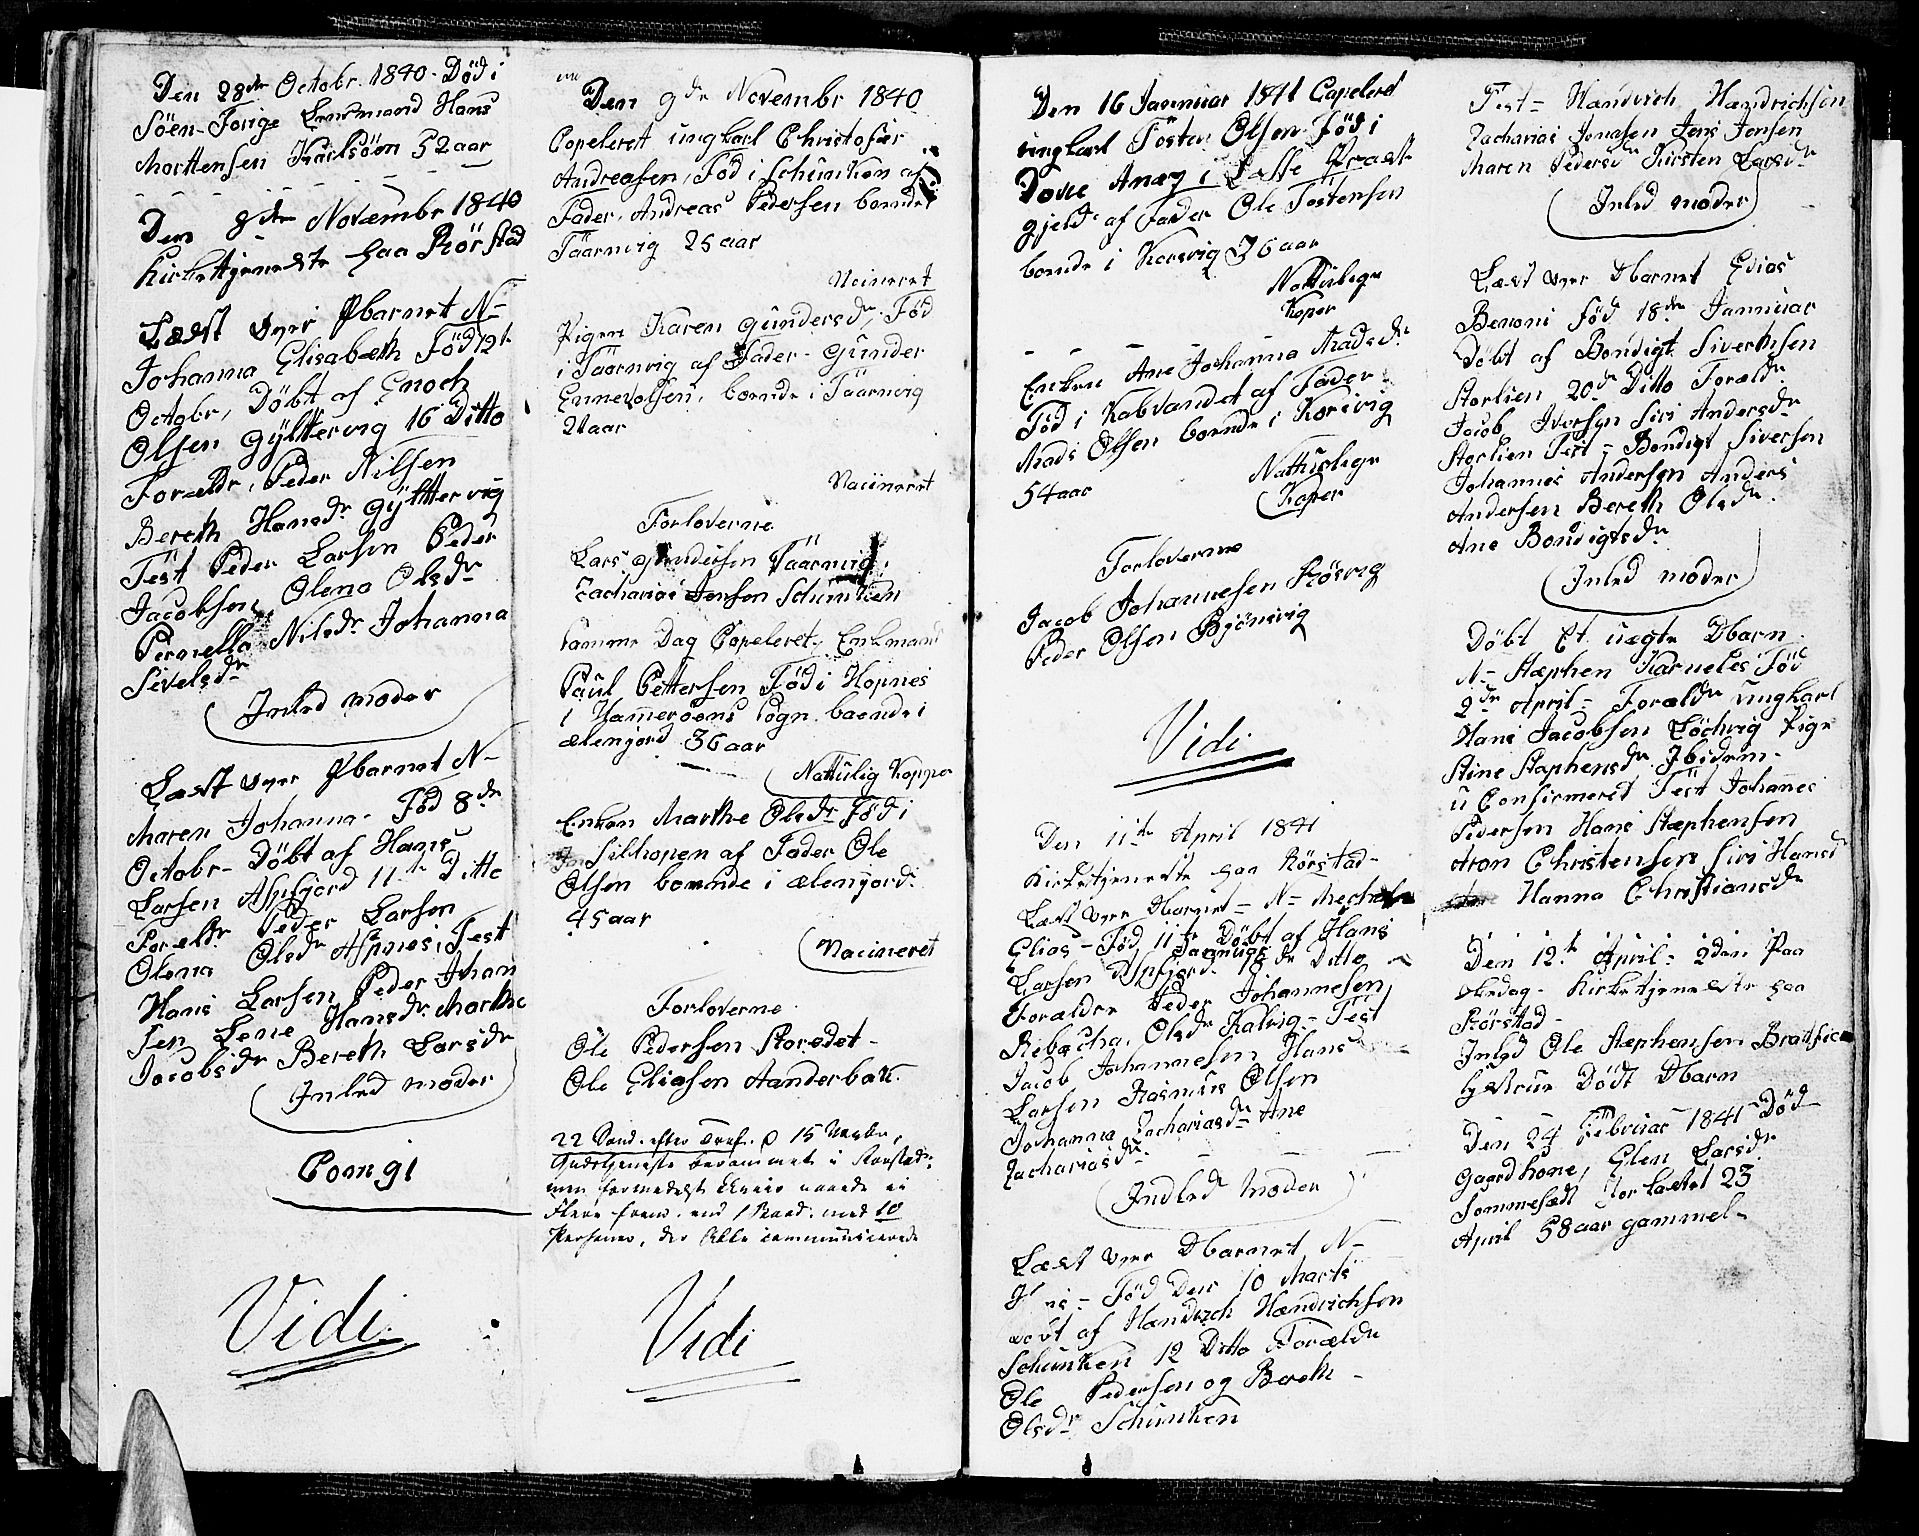 Den 28de Octobr. 1840. Död i
Söen-Forige Lensmand Hans
Morttensen Karlsöen 52 aar
Den 8de Novembr 1840
Kirkettjeneste paa Rörstad
Læst over Pbarnet N-
Johanna Elisabeth Föd 12te
Octobr, Döbt af Enoch
Olsen Gylttervig 16 Ditto
Forældr, Peder Nilsen
Bereth Hansdr Gylttervig
Test Peder Larsen Peder
Jacobsen, Olena Olsdr
Pernella Nilsdr Johanna
Sivelsdr
Inled moder
Læst over Pbarnet N-
Maren Johanna. Föd 8de
Octobr- Döbt af Hans
Larsen Aspfjord 11te Ditto
Foreldr Peder Larsen
Olena Olsdr Aspnes, Test
Hans Larsen Peder Johan
sen Lene Hansdr Marthe
Jacobsdr Bereth Larsdr
Inled moder
Poengi
Vidi
Den 9de Novembr 1840
Copeleret ungkarl Christofær
Andreasen, Föd i Schunken af
Fader, Andreas Pedersen boende i
Täarnvig 25 aar
Vacineret
Pigen Karen Gundersdr, Föd
i Täarnvig af Fader- Gunder
Ennevolsen, boende i Täarnvig
21 aar
Vacineret
Forloverne
Lars Andersen Täarnvig,
Zacharias Jensen Schunken
samme Dag Copeleret, Enkmand
Paul Pettersen Föd i Hopnes
i Hammeröens Sogn. boende i
Ælenjord 36 aar
Nattulig Kopper
Enken Marthe Olsdr Föd i
Silthopen af Fader Ole
Olsen boende i Ælenjord.
45 aar
Vacineret
Forloverne
Ole Pedersen Storedet-
Ole Eliasen Aanderbak.
22 Sönd. efter Tref. d 15 Novbr,
Gudstjeneste berammet i Rørstad,
men formedelst Uveir naaede ei
flere frem. end 1 Baad. med 10
Personer, der Alle communicerede
Vidi
Den 16 Januar 1841 Copeleret
ungkarl Tösten Olsen Föd i
Dovre Anæx i Læsse Præst-
gjeld af Fader Ole Töstensen
boende i Korsvig 36 aar
Nattulige
Koper
Enken Ane Johanna Madsdr
Föd i Kobvandet af Fader
Mads Olsen boende i Korsvig
54 aar
Nattuelige
Koper
Forloverne
Jacob Johannesen Rösvig
Peder Olsen Bjönsvig
Vidi
Den 11te April 1841
Kirketjeneste paa Rörstad-
Læst over Dbarnet - N-
Elias- Föd 11te Döbt af Hans
Januar
Larsen Aspfjord. Ditto
Forældre Peder Johannesen
Rebacha, Olsdr Kalvig- Test
Jacob Johannesen Hans
Larsen Rasmus Olsen
Johanna Zachariasdr Ane
Zachariasdr
Indled Moder
Læst over Dbarnet N-
Föd Den 10 Marts
af Hændrich Hændrichsen
Schunken 12 Ditto Forældr
Ole Pedersen og Bereth
Olsdr Schunken
Test- Hændrich Hændrichsen
Zacharias Jonasen Jens Jensen
Maren Pedersdr Kirsten Larsdr
Inled moder
Læst over Dbarnet Edias
Benoni föd 18de Januar
Döbt af Bendigt Siverthsen
Storlien 20de Ditto Forældr
Jacob Iversen Siri Andersdr
Storlien Test- Bendigt Siversen
Johannes Andersen Anders
Andersen Bereth Olsdr.
Ane Bendigtsdr
Inled moder
Döbt Et uægte Dbarn
N- Stæphen Karneles Föd
2de April- Forældr ungkarl
Hans Jacobsen Löchvig Pige
Stine Staphensdr Ibidem-
u Confirmeret Test Johannes
Pedersen Hans Stæphensen
Aron Christensen Siri Hansd
Hanna Christiansdr
Den 12te April- 2den Paa
skedag- Kirketjeneste paa
Rörstad-
Inled Ole Stæphensen
hustrue Dödt Dbarn
Den 24 Februar 1841 Död
Gaardkone, Elen Larsdr
Sommesædt Jor kastet 23
April 58 aar gammel-